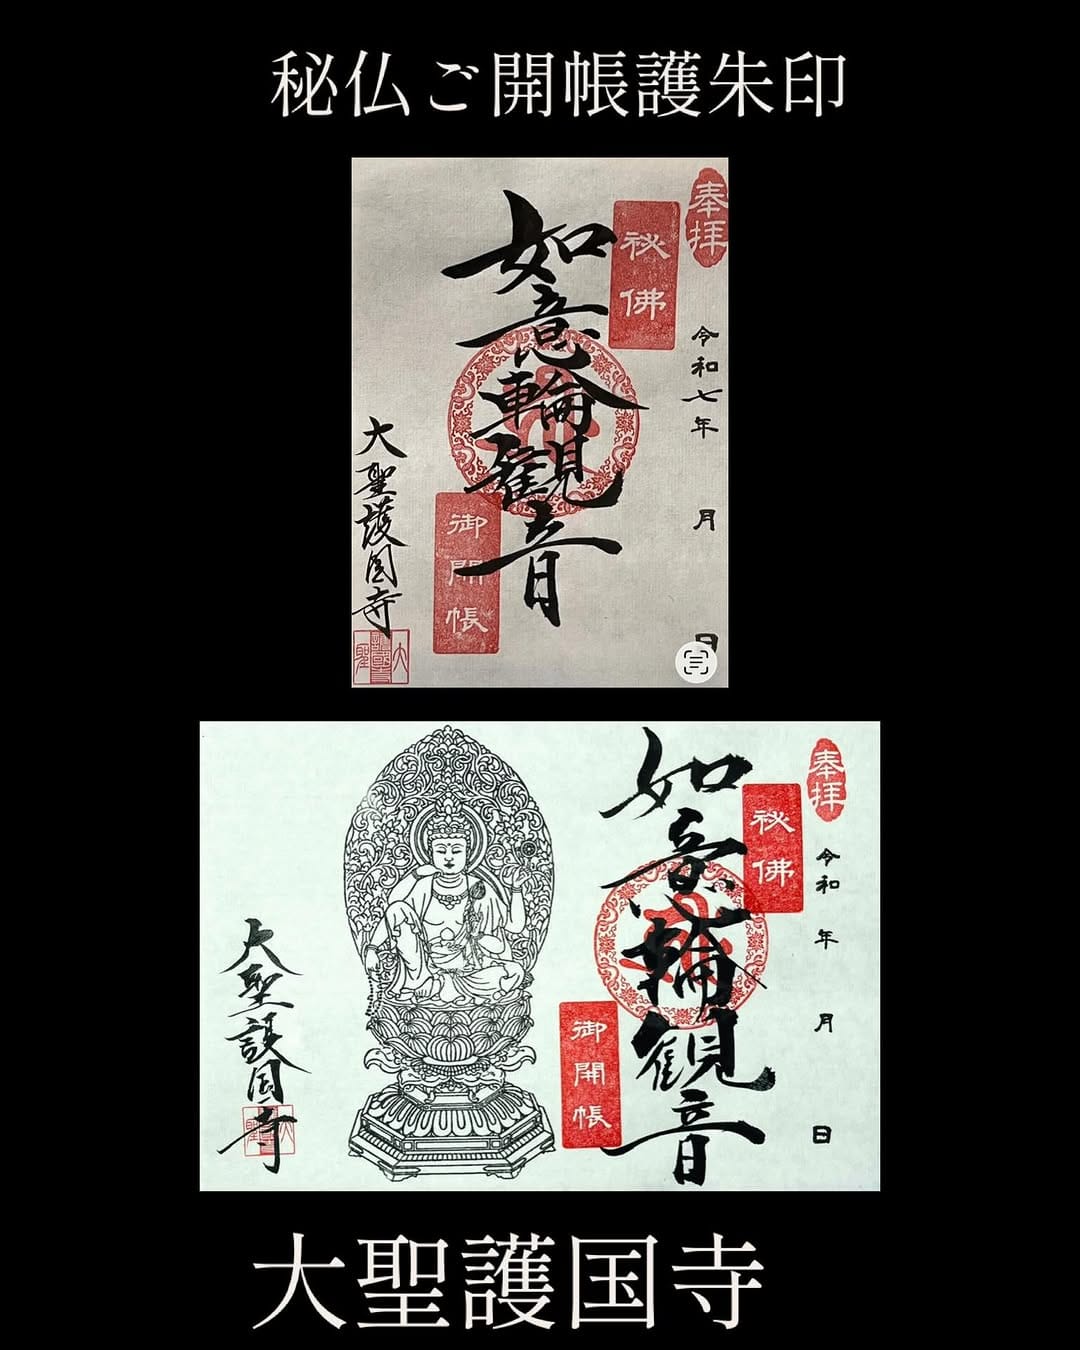 秘仏ご開帳護朱印
奉拝
秘佛
令和七年 月 日
如意輪観音
御開帳
大聖護国寺
大聖護國寺
奉拝
秘佛
令和 年 月 日
如意輪観音
御開帳
大聖護国寺
大聖護国寺